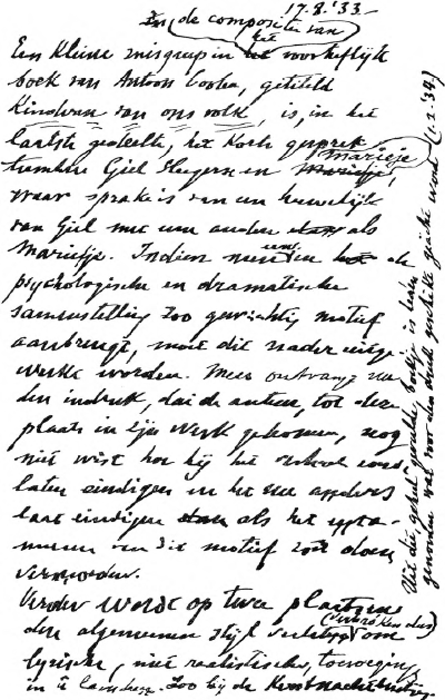 17.8.'33.
In de compositie van
Een kleine misgreep in het voortreffelijke
boek van Antoon Coolen, getiteld
Kinderen van ons volk, is, in het
laatste gedeelte, het korte gesprek
tusschen Giel Slegers en Marietje,
waar sprake is van een huwelijk
van Giel met een ander dan als
Marietje. Indien men een de
psychologische en dramatische
samenstelling zoo gewichtig motief
aanbrengt, moet dit nader uitge-
werkt worden. Men ontvangt nu
den indruk, dat de auteur, tot deze
plaats in zijn werk gekomen, nog
niet wist hoe hij het verhaal zou
laten eindigen en het nu anders
laat eindigen dan als het opta-
men van dit motief zou doen
vermoeden.
Verder wordt op twee plaatsen
den algemeenen stijl verlaten om
lyrische, niet realistische, toevoeging
in te lasschen. Zoo bij de Kerstnachtviering
Uit dit geheel gevulde boekje is heden
genomen wat voor den druk geschikt geacht werd (1.2.'34.)